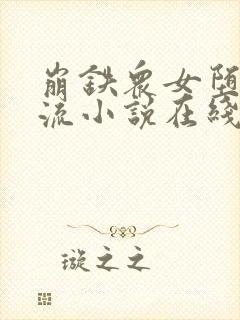 崩鉄衆女堕
流小説在綫
璇之之